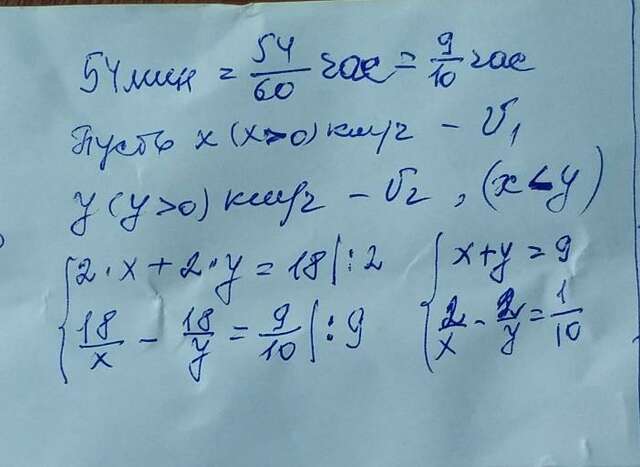 54мин = 54/60 час = 9/10 час
Пусть x (x>0) км/ч - V₁
y (y>0) км/ч - V₂, (x<y)
{ 2·x + 2·y = 18 |:2
{ 18/x - 18/y = 9/10 |:9
{ x+y = 9
{ 2/x - 2/y = 1/10